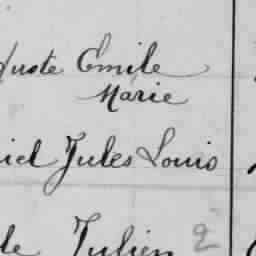 guste Emile
Marie
iel Jules Louis
le Julien 2